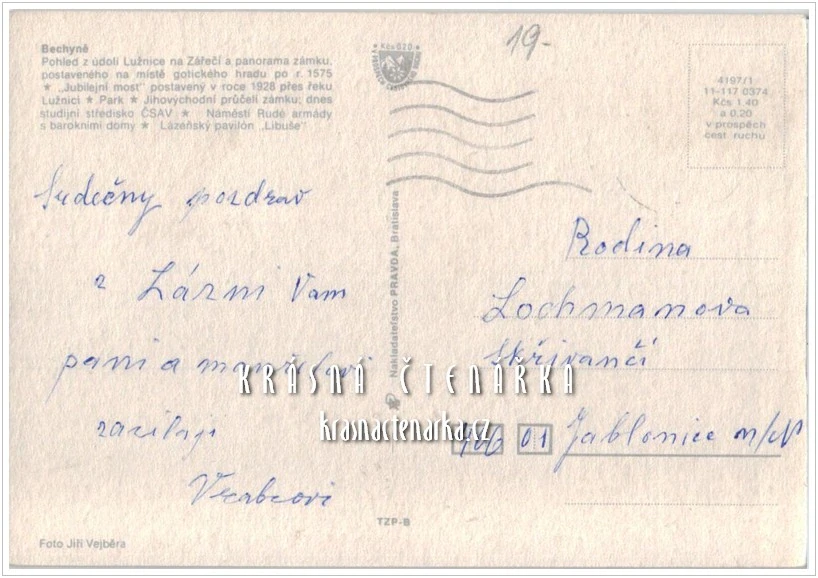 Bechyně
Pohled z údolí Lužnice na Zářečí a panorama zámku,
postaveného na místě gotického hradu po r. 1575
★ „Jubilejní most" postavený v roce 1928 přes řeku
Lužnici ★ Park ★ Jihovýchodní průčelí zámku; dnes
studijní středisko ČSAV ★ Náměstí Rudé armády
s barokními domy ★ Lázeňský pavilón „Libuše"
Kčs 0,20
19.-
4197/1
11-117 0374
Kčs 1.40
a 0.20
v prospěch
cest ruchu
Srdečný pozdrav
z Lázni Vam
pani a manželovi
zasilaji
Vrabcovi
Nakladatelstvo PRAVDA, Bratislava
Rodina
Lochmanova
Skřivančí
466 01 Jablonice n/N
KRÁSNÁ ČTENÁŘKA
krasnactenarka.cz
TZP-B
Foto Jiří Vejběra